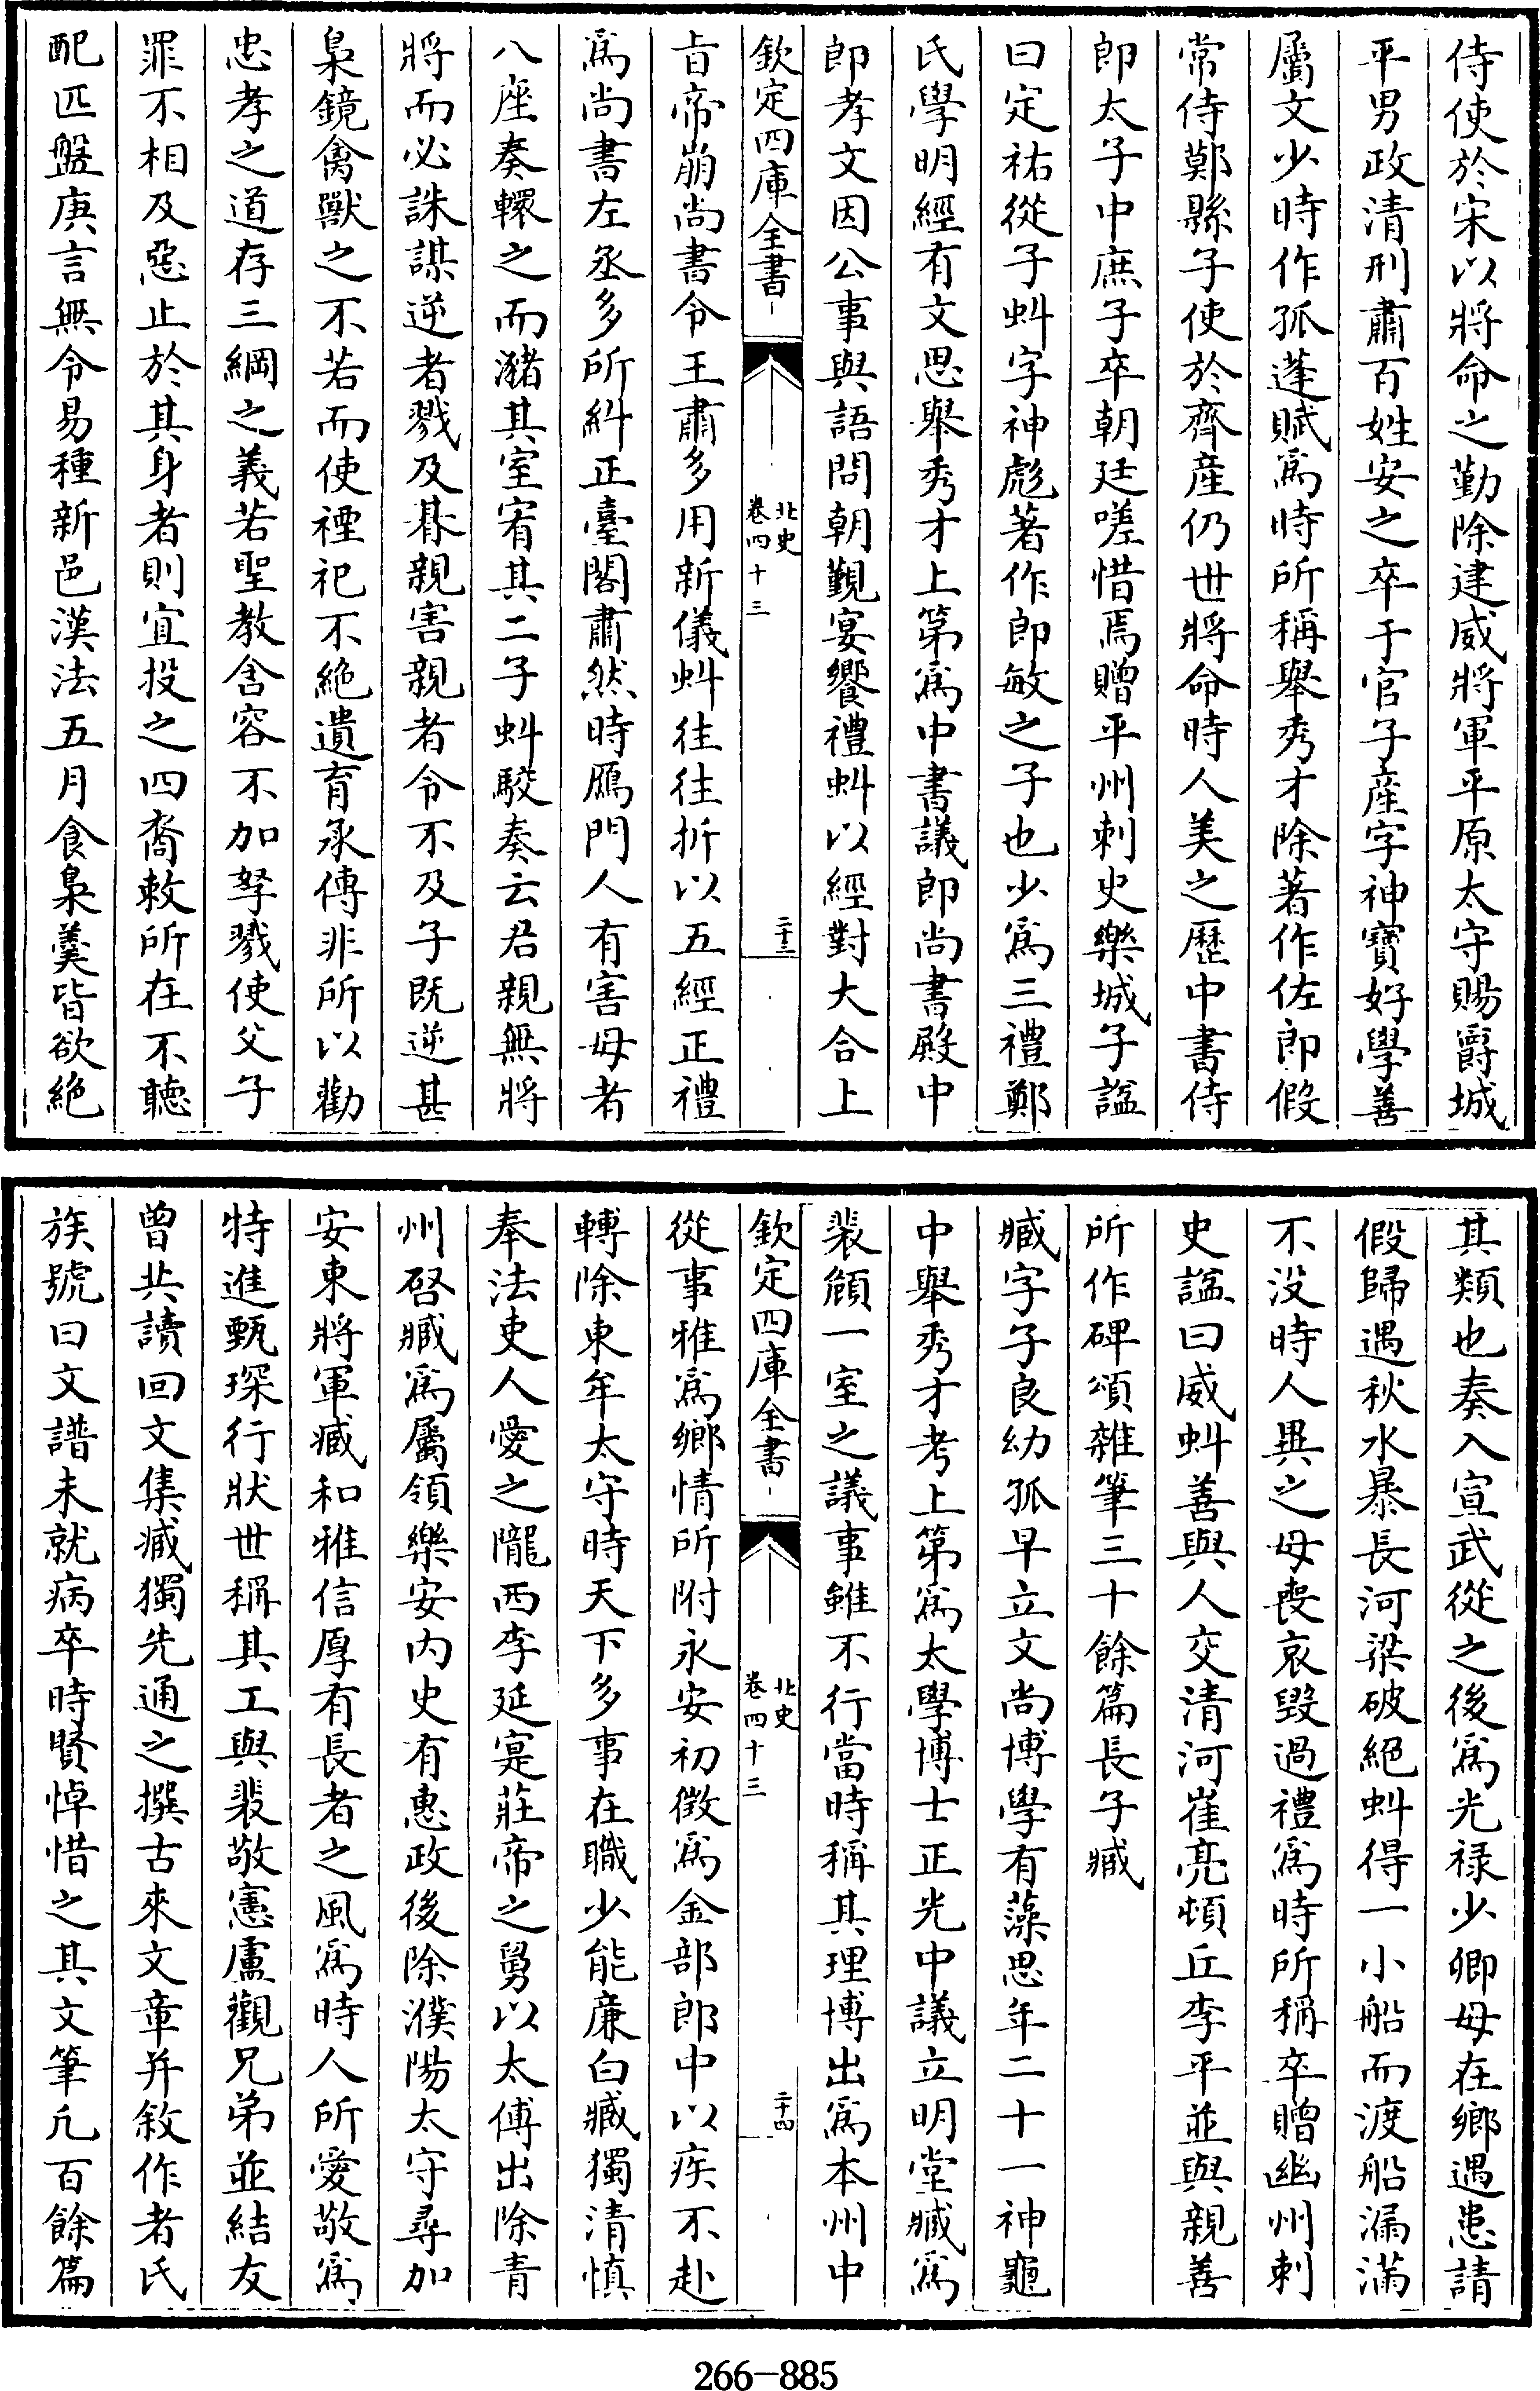 侍使於宋以將命之勤除建威將軍平原太守賜爵城
平男政清刑肅百姓安之卒于官子產字神寶好學善
屬文少時作孤蓬賦爲時所稱舉秀才除著作佐郎假
常侍鄭縣子使於齊產仍世將命時人美之歷中書侍
郎太子中庶子卒朝廷嗟惜焉贈平州刺史樂城子諡
曰定祐從子虯字神彪著作郎敏之子也少爲三禮鄭
氏學明經有文思舉秀才上第爲中書議郎尚書殿中
郎孝文因公事與語問朝覲宴饗禮虯以經對大合上
欽定四庫全書 北史 卷四十三 二十三
旨帝崩尚書令王肅多用新儀虯往往折以五經正禮
爲尚書左丞多所糾正臺閣肅然時鴈門人有害母者
八座奏轘之而瀦其室宥其二子虯駮奏云君親無將
將而必誅謀逆者戮及朞親害親者令不及子既逆甚
梟鏡禽獸之不若而使禋祀不絶遺育承傳非所以勸
忠孝之道存三綱之義若聖教含容不加孥戮使父子
罪不相及惡止於其身者則宜投之四裔敕所在不聽
配匹盤庚言無令易種新邑漢法五月食梟羹皆欲絶
其類也奏入宣武從之後爲光禄少卿母在鄉遇患請
假歸遇秋水暴長河梁破絕虯得一小船而渡船漏滿
不没時人異之母喪哀毀過禮爲時所稱卒贈幽州刺
史諡曰威虯善與人交清河崔亮頓丘李平並與親善
所作碑頌雜筆三十餘篇長子臧
臧字子良幼孤早立文尚博學有藻思年二十一神龜
中舉秀才考上第爲太學博士正光中議立明堂臧爲
裴頠一室之議事雖不行當時稱其理博出爲本州中
欽定四庫全書 北史 卷四十三 二十四
從事雅爲鄉情所附永安初徵爲金部郎中以疾不赴
轉除東牟太守時天下多事在職少能廉白臧獨清慎
奉法吏人愛之隴西李延寔莊帝之舅以太傅出除青
州啓臧爲屬領樂安内史有惠政後除濮陽太守尋加
安東將軍臧和雅信厚有長者之風爲時人所愛敬爲
特進甄琛行狀世稱其工與裴敬憲盧觀兄弟並結友
曾共讀回文集臧獨先通之撰古來文章并敘作者氏
族號曰文譜未就病卒時賢悼惜之其文筆凡百餘篇
266-885